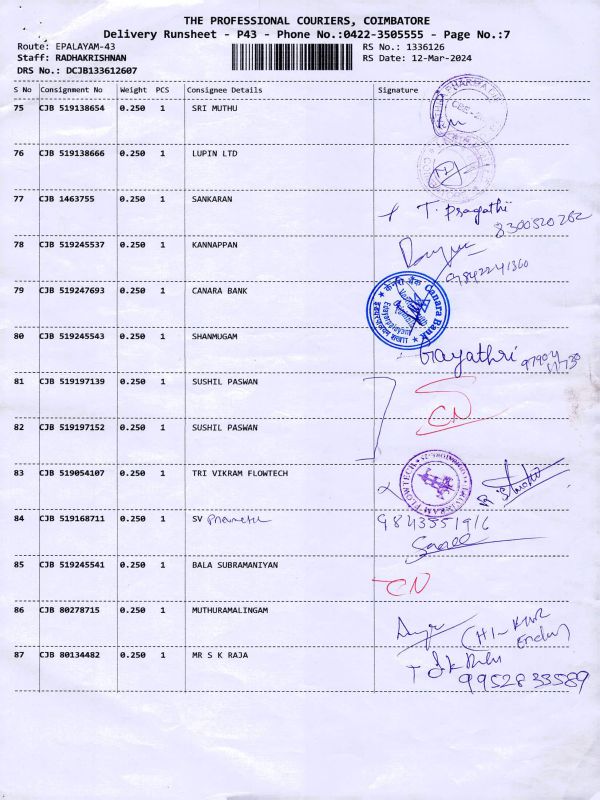 THE PROFESSIONAL COURIERS, COIMBATORE
Delivery Runsheet - P43 - Phone No.:0422-3505555 - Page No.:7
Route: EPALAYAM-43 RS No.: 1336126
Staff: RADHAKRISHNAN RS Date: 12-Mar-2024
DRS No.: DCJB133612607
S No Consignment No Weight PCS Consignee Details Signature
75 CJB 519138654 0.250 1 SRI MUTHU
76 CJB 519138666 0.250 1 LUPIN LTD
77 CJB 1463755 0.250 1 SANKARAN T. Pragathi
8300520262
78 CJB 519245537 0.250 1 KANNAPPAN
9842241360
79 CJB 519247693 0.250 1 CANARA BANK केनरा बैंक Canara Bank
80 CJB 519245543 0.250 1 SHANMUGAM Gayathri
81 CJB 519197139 0.250 1 SUSHIL PASWAN
CN
82 CJB 519197152 0.250 1 SUSHIL PASWAN
83 CJB 519054107 0.250 1 TRI VIKRAM FLOWTECH TRI VIKRAM FLOWTECH
84 CJB 519168711 0.250 1 SV 9843551916
85 CJB 519245541 0.250 1 BALA SUBRAMANIYAN CN
86 CJB 80278715 0.250 1 MUTHURAMALINGAM
87 CJB 80134482 0.250 1 MR S K RAJA
9952833589